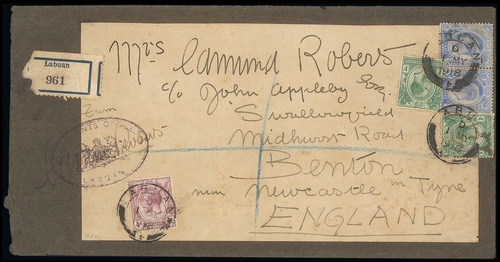 Labuan
961
Mrs Edmund Roberts
c/o John Appleby Esq.
Swallowfield
Midhurst Road
Benton
near Newcastle on Tyne
ENGLAND
From
LABUAN
1918
LABUAN
LABUAN